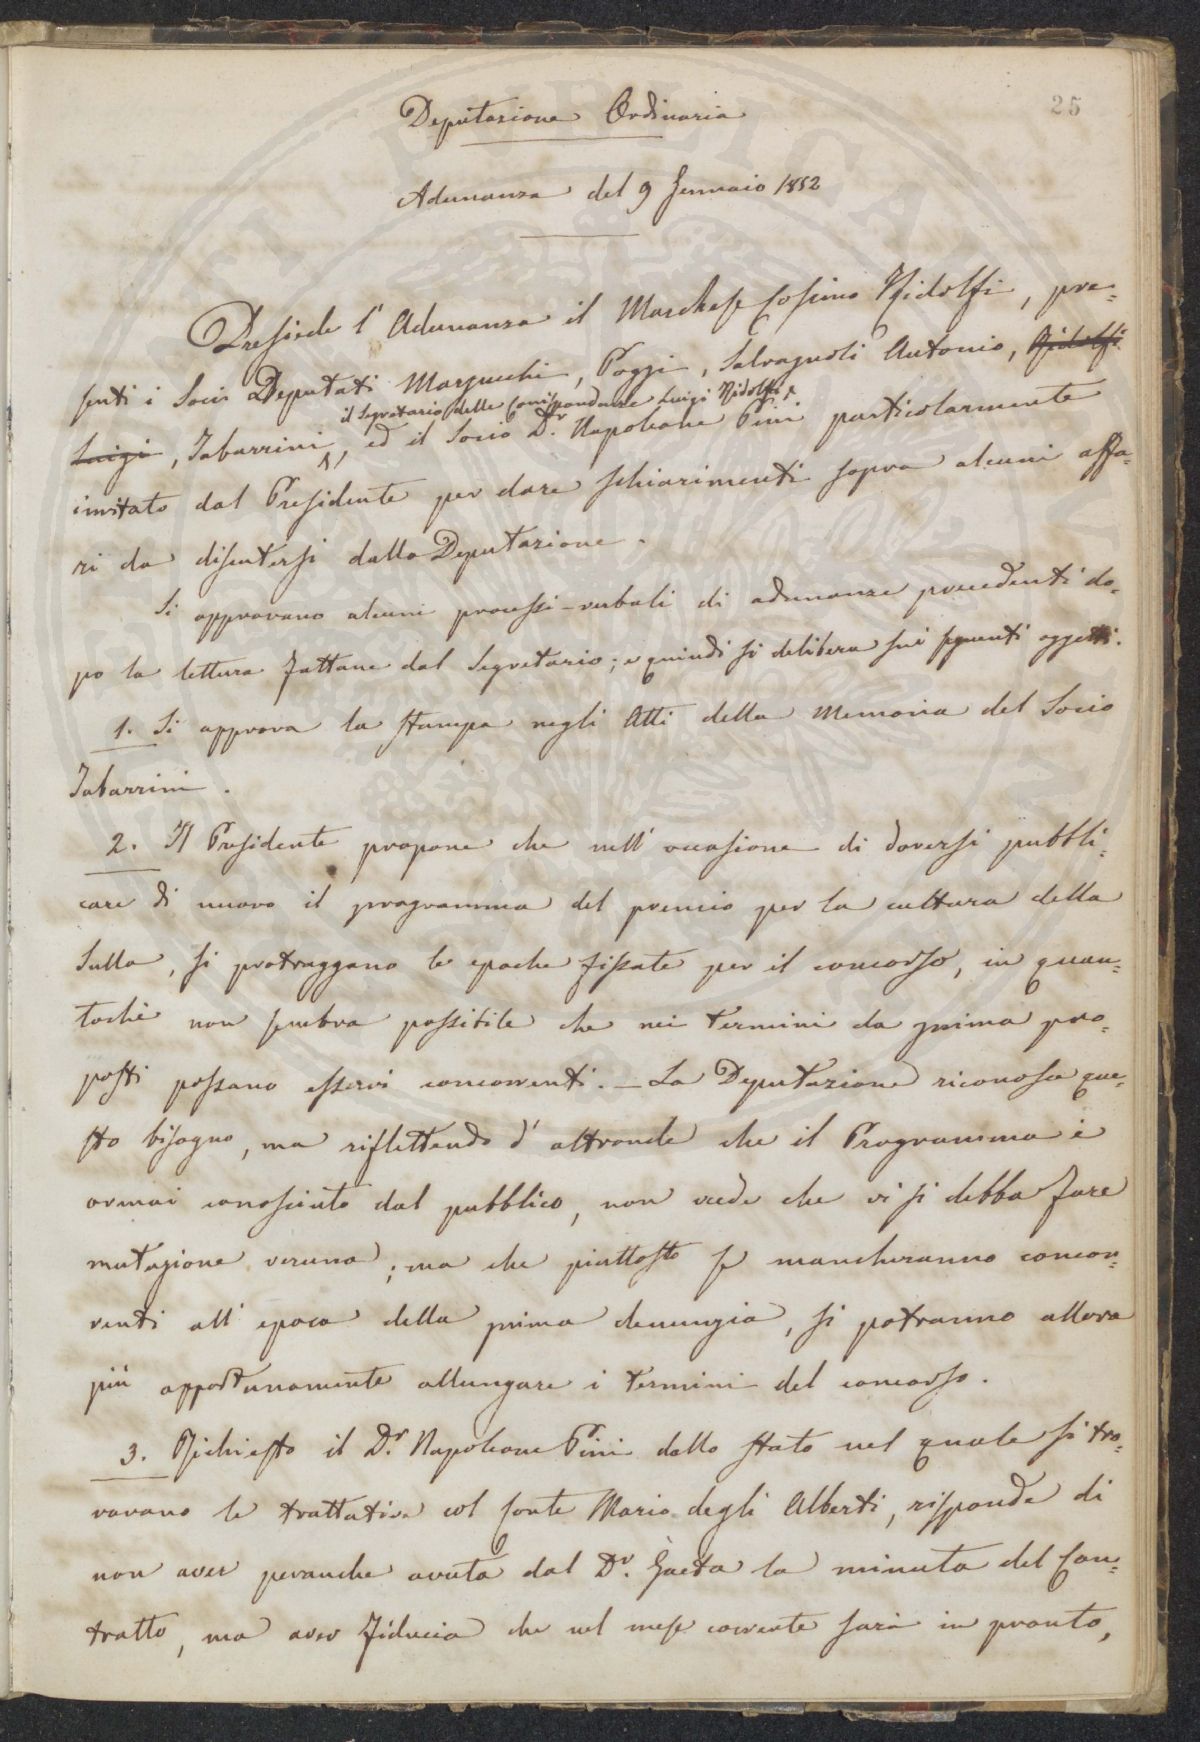 25
Deputazione Ordinaria
Adunanza del 9 Gennaio 1852
Presiede l'Adunanza il Marchese Cosimo Ridolfi, pre-
senti i Socii Deputati Marzucchi, Poggi, Salvagnoli Antonio, Ridolfi
il Segretario delle Corrispondenze Luigi Ridolfi,
Luigi, Tabarrini, ed il Socio Dr. Napoleone Pini particolarmente
invitato dal Presidente per dare schiarimenti sopra alcuni affa-
ri da discutersi dalla Deputazione.
Si approvano alcuni processi-verbali di adunanze precedenti do-
po la lettura fattane dal Segretario; e quindi si delibera sui seguenti oggetti.
1. Si approva la stampa negli Atti della Memoria del Socio
Tabarrini.
2. Il Presidente propone che nell'occasione di doversi pubbli-
care di nuovo il programma del premio per la cultura della
Sulla, si protraggano le epoche fissate per il concorso, in quan-
tochè non sembra possibile che nei termini da prima pro-
posti possano esservi concorrenti. — La Deputazione riconosce que-
sto bisogno, ma riflettendo d'altronde che il Programma è
ormai conosciuto dal pubblico, non vede che vi si debba fare
mutazione veruna; ma che piuttosto se mancheranno concor-
renti all'epoca della prima denunzia, si potranno allora
più opportunamente allungare i termini del concorso.
3. Richiesto il Dr. Napoleone Pini dello stato nel quale si tro-
vavano le trattative col Conte Mario degli Alberti, risponde di
non aver peranche avuta dal Dr. Gaeta la minuta del Con-
tratto, ma aver fiducia che nel mese corrente sarà in pronto,